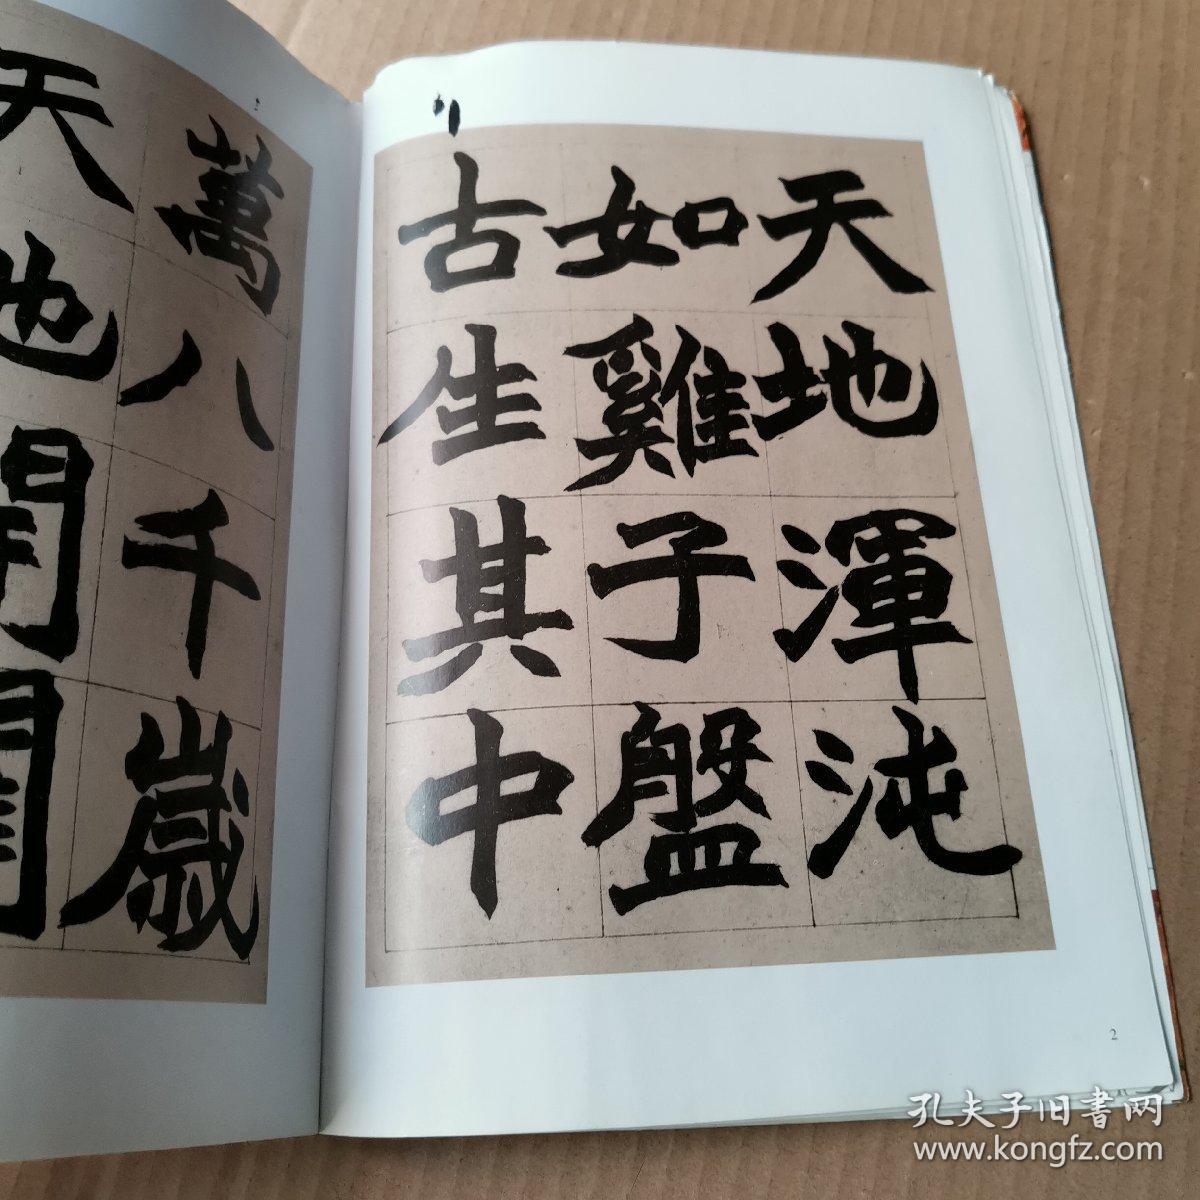 天地渾沌
如雞子盤
古生其中
萬八千歲
天地開闢
2
孔夫子旧書网
www.kongfz.com